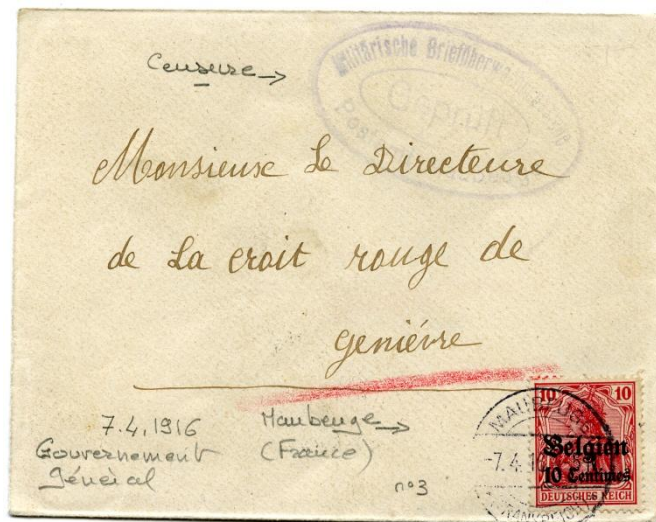 Censure →
Militärische
Geprüft
Monsieux Le Directeure
de La croit rouge de
genièvre
7.4.1916
Gouvernement
Général
Maubeuge →
(France)
n°3
MAUBEUGE
-7.4.16
10 10
Belgien
10 Centimes
DEUTSCHES REICH